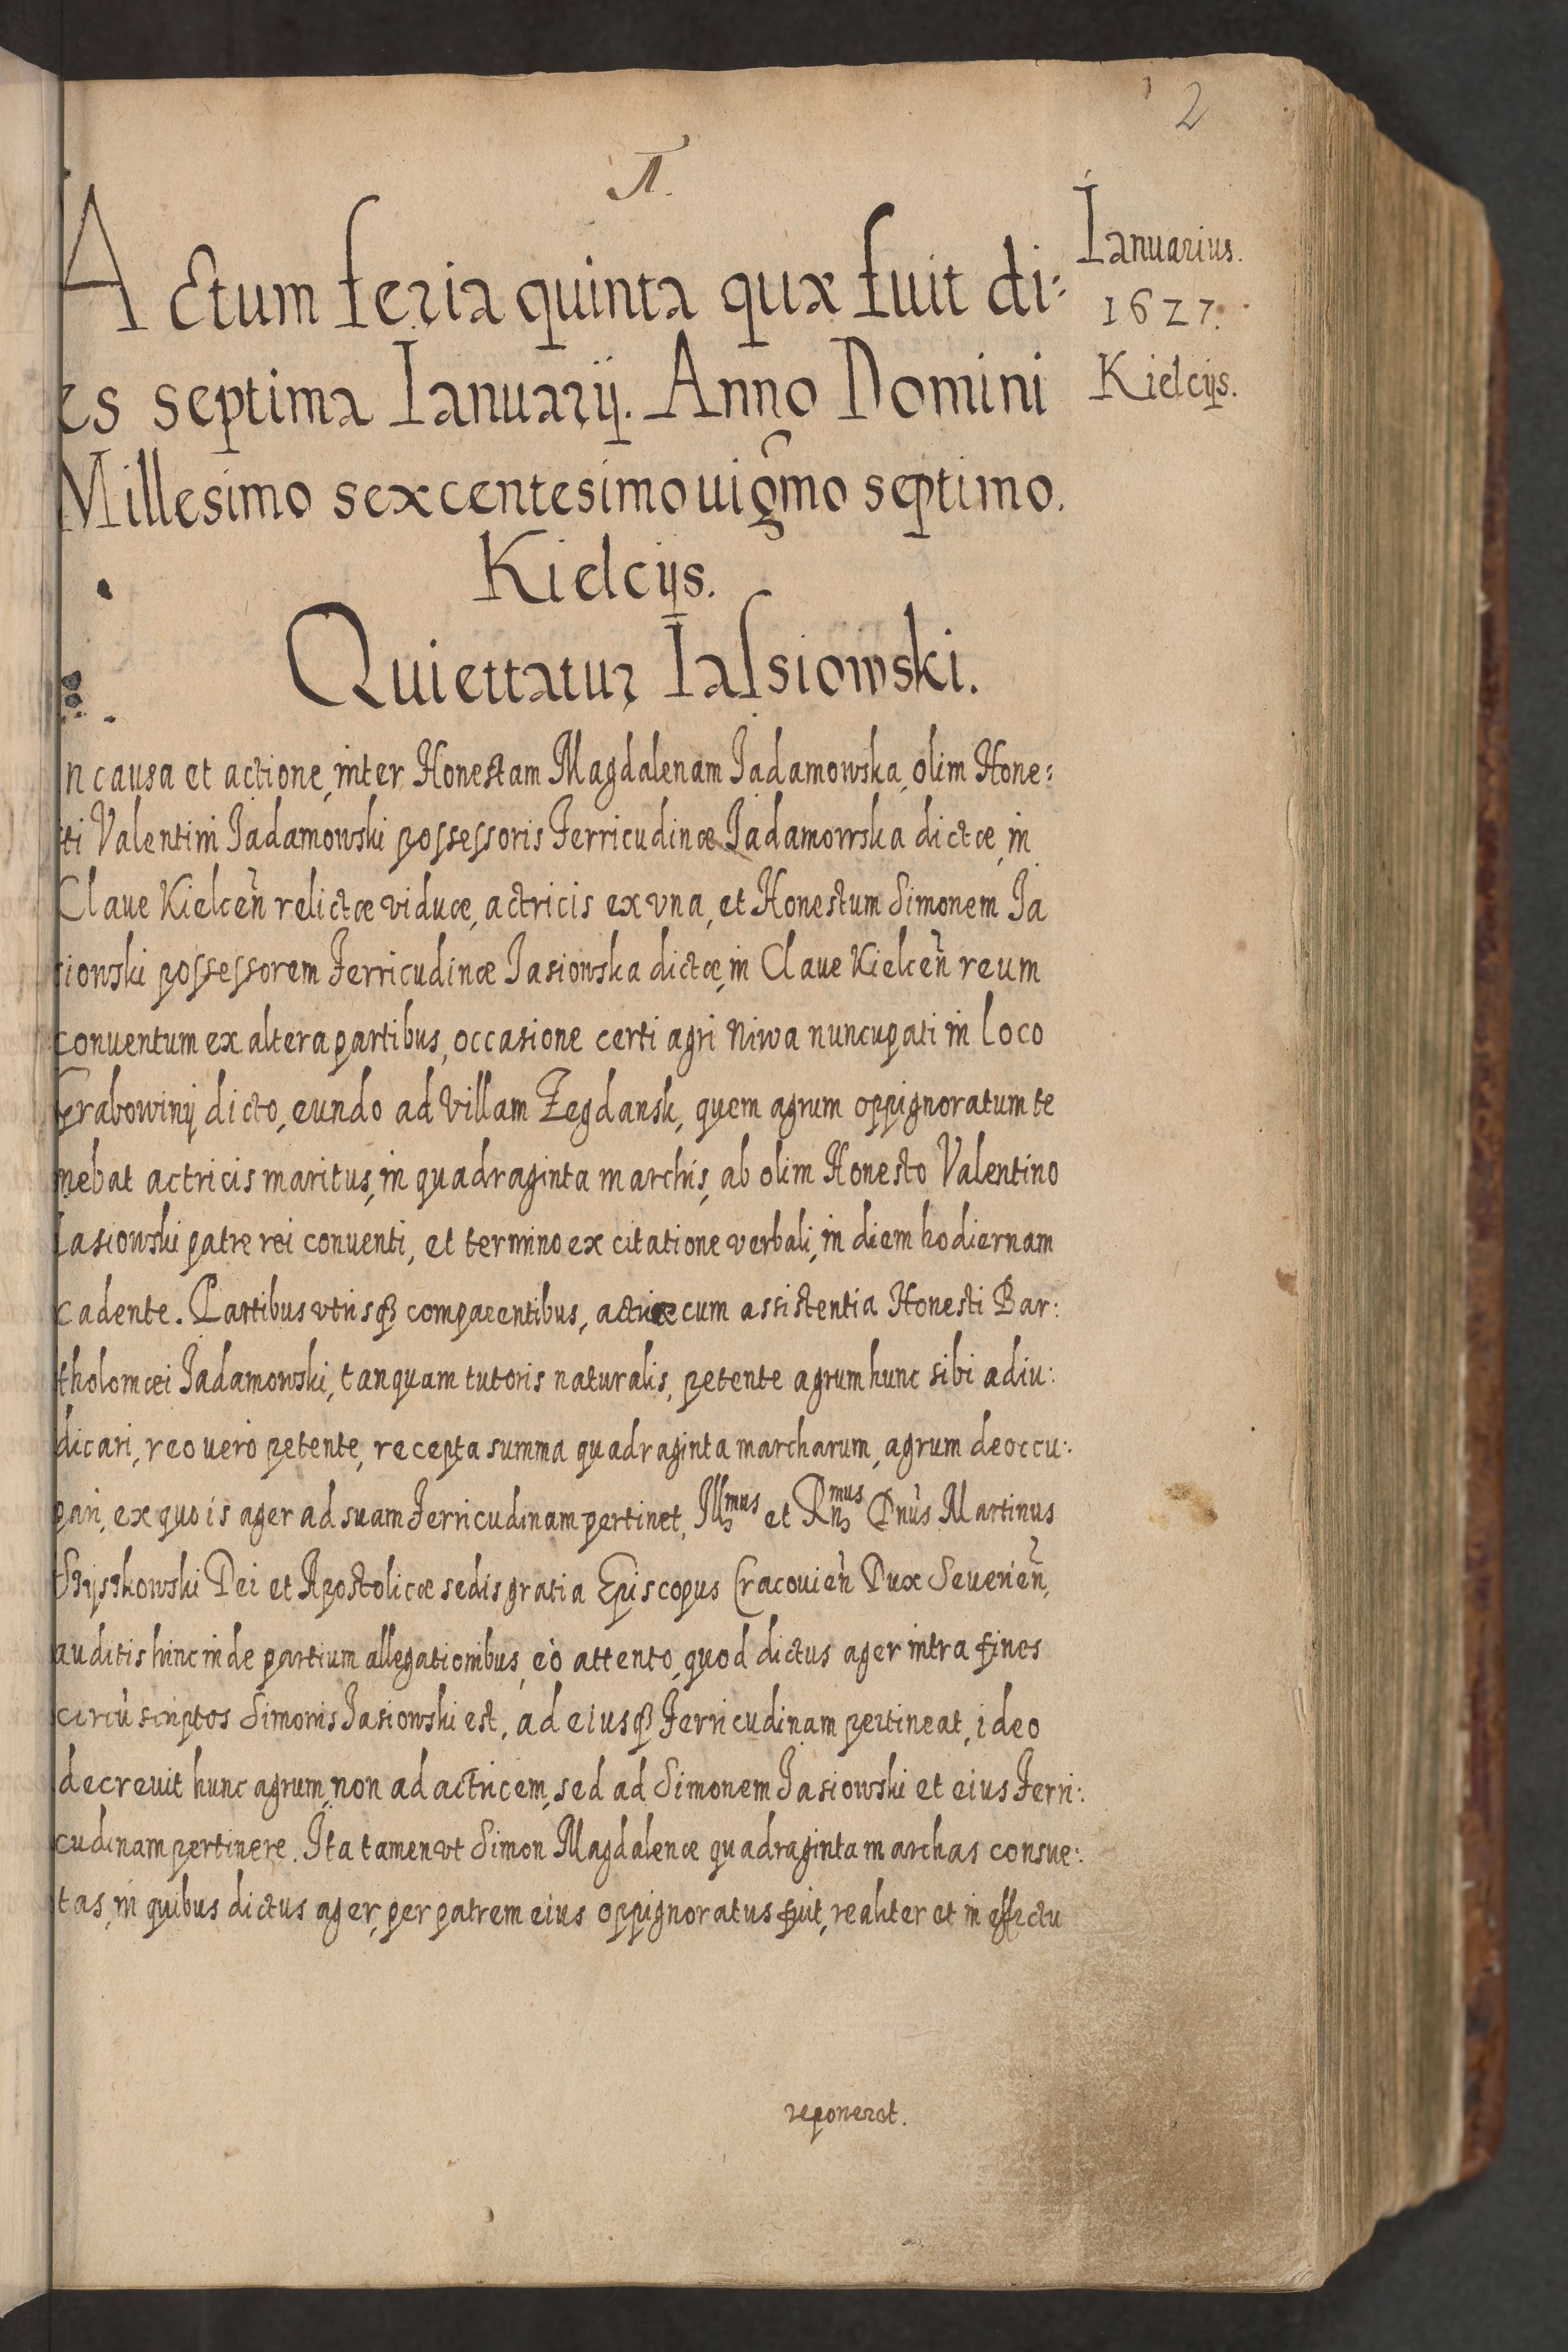 2
A.
Actum feria quinta quæ fuit di:
es septima Ianuarij. Anno Domini
Millesimo sexcentesimo uigmo septimo.
Kielcijs.
Ianuarius.
1627.
Kielcijs.
Quiettatur Iaſsiowski.
In causa et actione, inter Honestam Magdalenam Jadamowska, olim Hone:
sti Valentini Jadamowski poſseſsoris Ferricudinæ Jadamowska dictæ, in
Claue Kielceñ relictæ viduæ, actricis ex vna, et Honestum Simonem Ja
siowski poſseſsorem Ferricudinæ Jasiowska dictæ, in Claue Kielceñ reum
conuentum ex altera partibus, occasione certi agri Niwa nuncupati in loco
Grabowiny dicto, eundo ad Villam Zegdansk, quem agrum oppignoratum te
nebat actricis maritus, in quadraginta marchis, ab olim Honesto Valentino
Jasiowski patre rei conuenti, et termino ex citatione verbali, in diem hodiernam
cadente. Partibus vtrisqȝ comparentibus, actrice cum assistentia Honesti Bar:
tholomæi Jadamowski, tanquam tutoris naturalis, petente agrum hunc sibi adiu:
dicari, reo uerò petente, recepta summa quadraginta marcharum, agrum deoccu:
pari, ex quo is ager ad suam Ferricudinam pertinet, Illmus et Rnmus Dnus Martinus
Szyszkowski Dei et Apostolicæ sedis gratia Episcopus Cracouieñ Dux Seuerieñ,
auditis hinc inde partium allegationibus, eò attento, quod dictus ager intra fines
circũscriptos Simonis Jasiowski est, ad eiusqȝ Ferricudinam pertineat, ideo
decreuit hunc agrum, non ad actricem, sed ad Simonem Jasiowski et eius Ferri:
cudinam pertinere. Ita tamen vt Simon Magdalenæ quadraginta marchas consue:
tas, in quibus dictus ager, per patrem eius oppignoratus fuit, realiter et in effectu
reponeret.